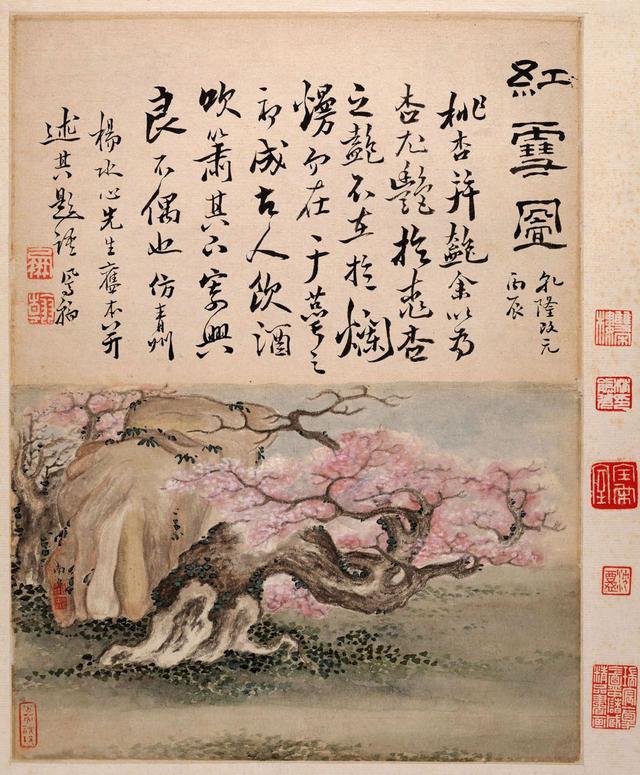 紅雪圖
乾隆改元
丙辰
桃杏并艷余以為
杏尤艷於桃杏
之艷不在於爛
熳而在于蕚之
初成古人飲酒
吹簫其下寄興
良不偶也仿青州
楊水心先生舊本并
述其題語 鳳翰
南阜